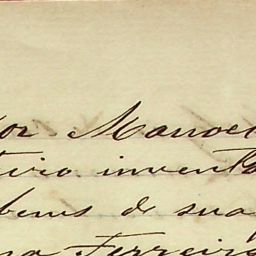 or Manoel
tiro inventa
bens de sua
na Ferreira